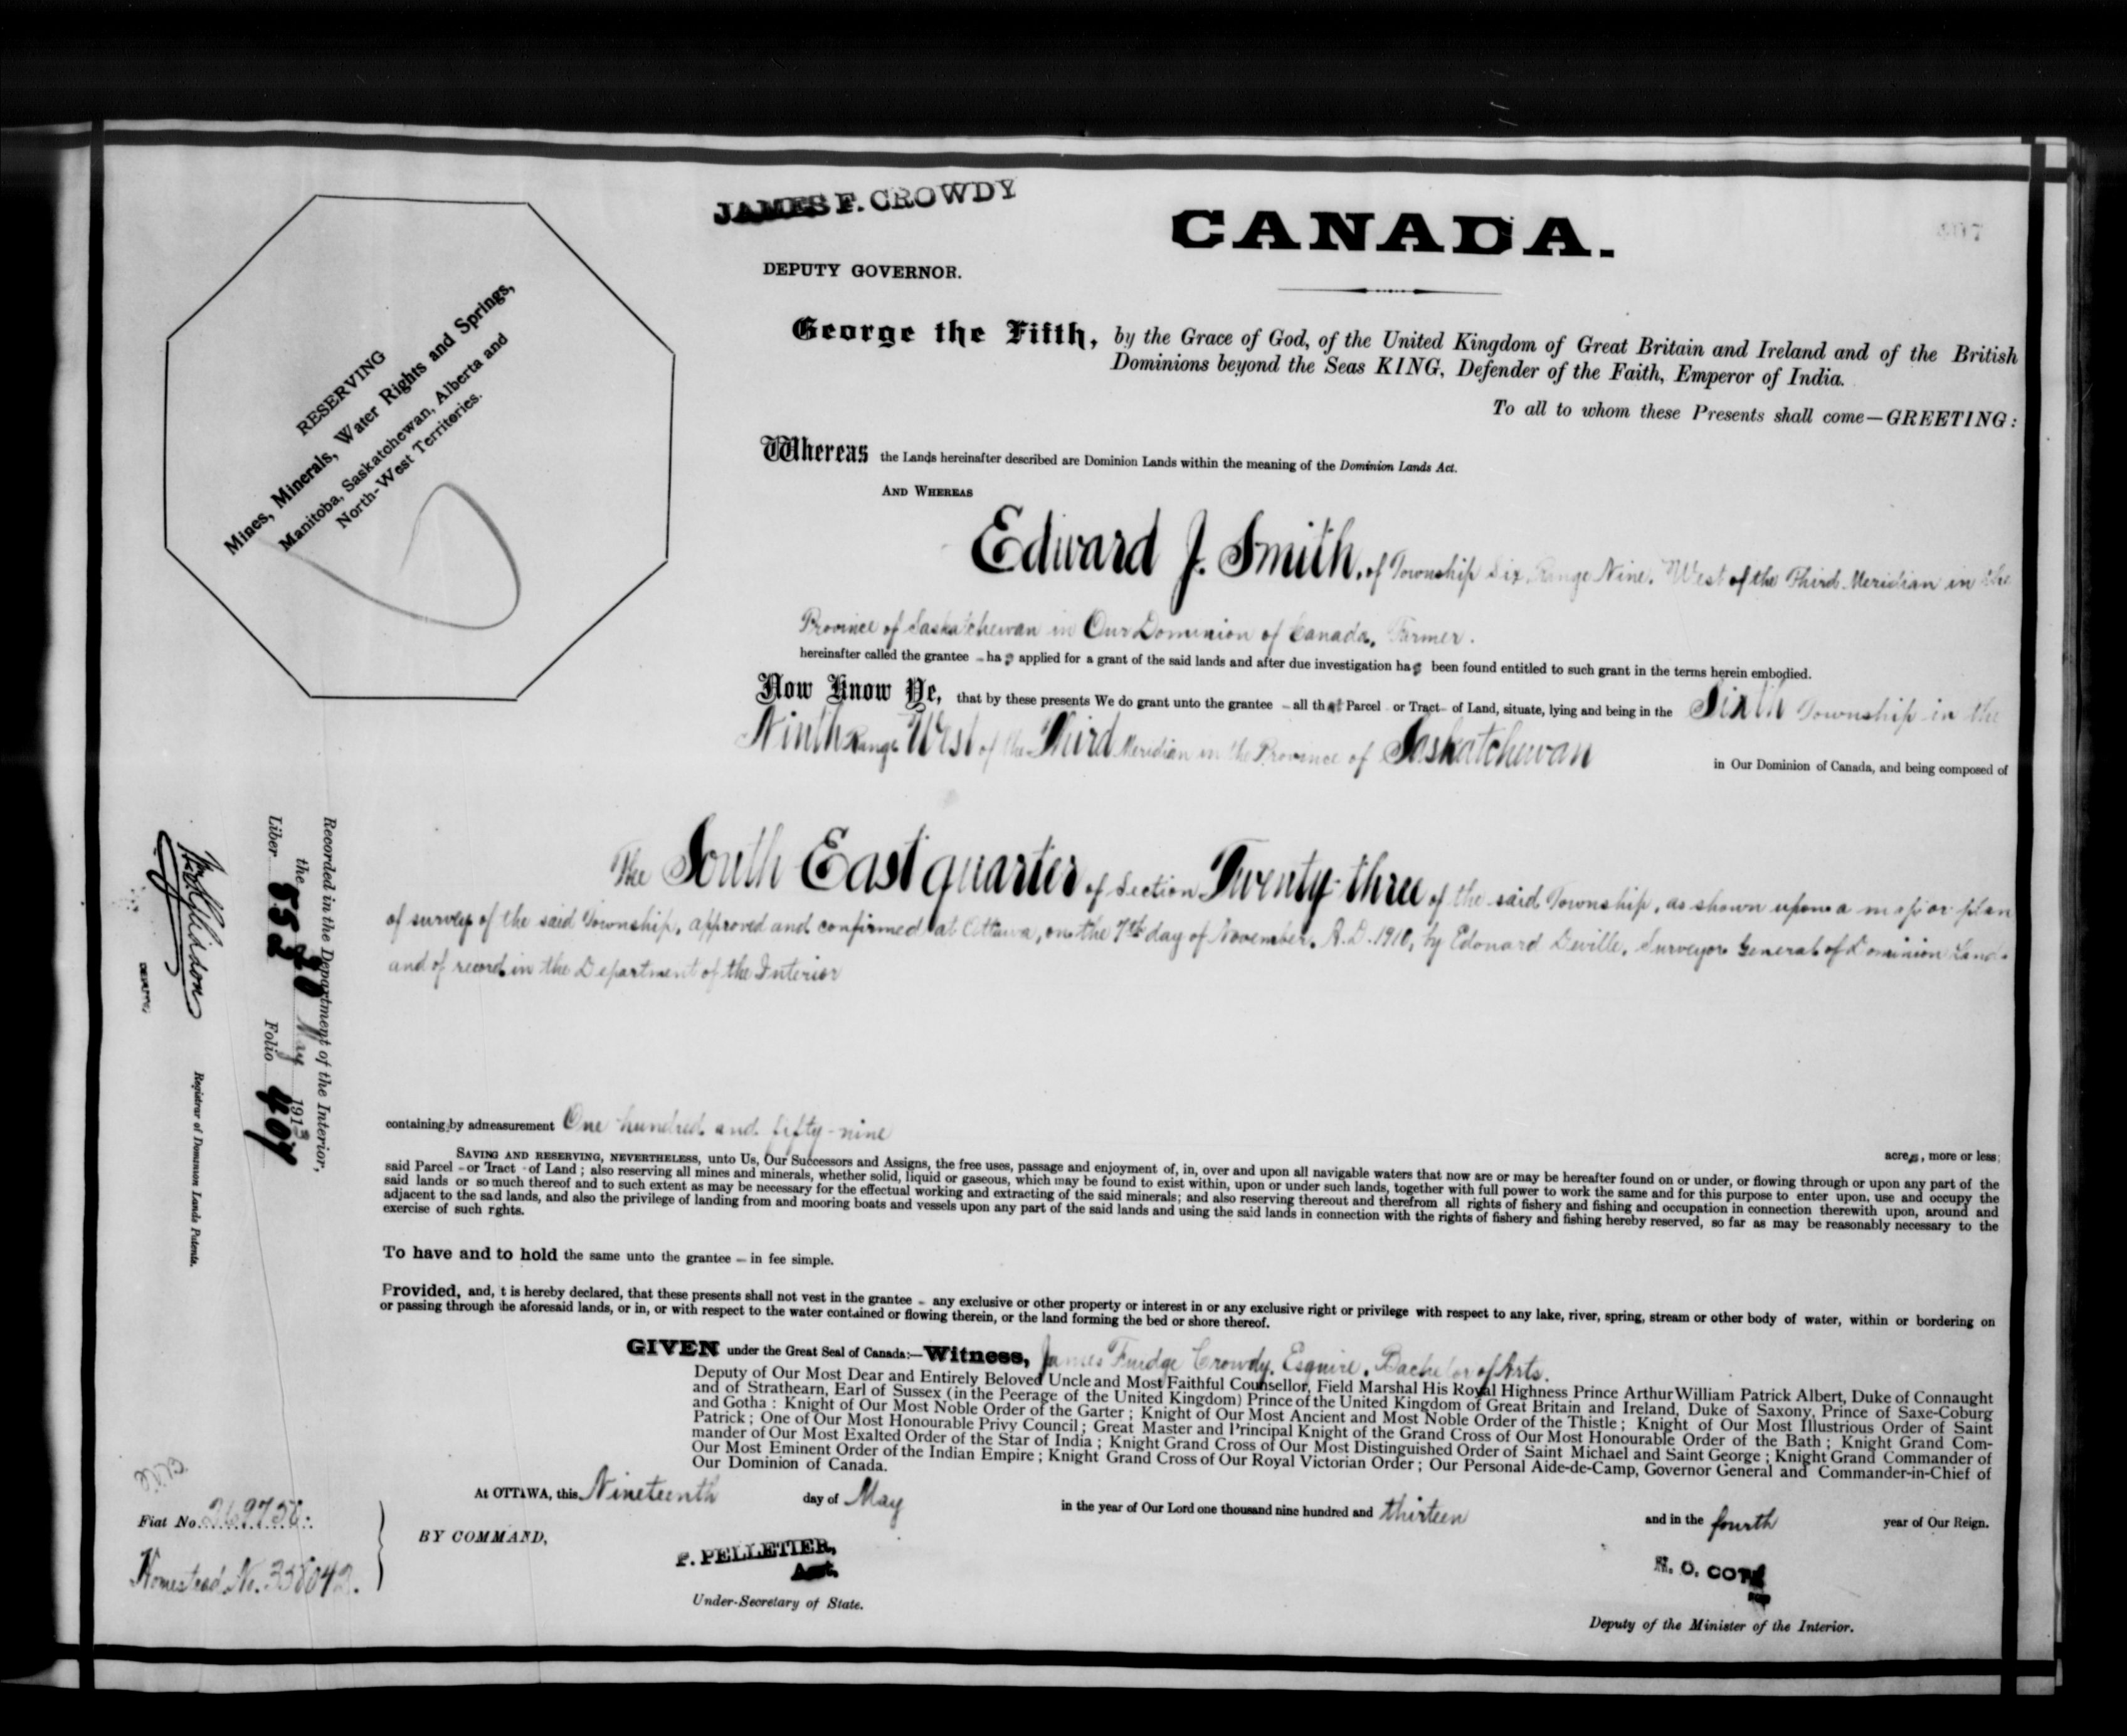 JAMES F. CROWDY
DEPUTY GOVERNOR.
CANADA.
RESERVING
Mines, Minerals, Water Rights and Springs,
Manitoba, Saskatchewan, Alberta and
North-West Territories.
George the Fifth, by the Grace of God, of the United Kingdom of Great Britain and Ireland and of the British
Dominions beyond the Seas KING, Defender of the Faith, Emperor of India.
To all to whom these Presents shall come—GREETING:
Whereas the Lands hereinafter described are Dominion Lands within the meaning of the Dominion Lands Act.
AND WHEREAS
Edward J. Smith, of Township Six, Range Nine, West of the Third Meridian in the
Province of Saskatchewan in Our Dominion of Canada, Farmer.
hereinafter called the grantee – has applied for a grant of the said lands and after due investigation has been found entitled to such grant in the terms herein embodied.
Now Know Ye, that by these presents We do grant unto the grantee – all that Parcel or Tract of Land, situate, lying and being in the Sixth Township in the
Ninth Range West of the Third Meridian in the Province of Saskatchewan in Our Dominion of Canada, and being composed of
The South East quarter of Section Twenty-three of the said Township, as shown upon a map or plan
of survey of the said Township, approved and confirmed at Ottawa, on the 7th day of November, A.D. 1910, by Edouard Deville, Surveyor General of Dominion Lands
and of record in the Department of the Interior
containing by admeasurement One hundred and fifty-nine
acres, more or less;
SAVING AND RESERVING, NEVERTHELESS, unto Us, Our Successors and Assigns, the free uses, passage and enjoyment of, in, over and upon all navigable waters that now are or may be hereafter found on or under, or flowing through or upon any part of the
said Parcel – or Tract – of Land; also reserving all mines and minerals, whether solid, liquid or gaseous, which may be found to exist within, upon or under such lands, together with full power to work the same and for this purpose to enter upon, use and occupy the
said lands or so much thereof and to such extent as may be necessary for the effectual working and extracting of the said minerals; and also reserving thereout and therefrom all rights of fishery and fishing and occupation in connection therewith upon, around and
adjacent to the sad lands, and also the privilege of landing from and mooring boats and vessels upon any part of the said lands and using the said lands in connection with the rights of fishery and fishing hereby reserved, so far as may be reasonably necessary to the
exercise of such rghts.
To have and to hold the same unto the grantee – in fee simple.
Provided, and, t is hereby declared, that these presents shall not vest in the grantee – any exclusive or other property or interest in or any exclusive right or privilege with respect to any lake, river, spring, stream or other body of water, within or bordering on
or passing through the aforesaid lands, or in, or with respect to the water contained or flowing therein, or the land forming the bed or shore thereof.
GIVEN under the Great Seal of Canada:—Witness, James Fuidge Crowdy, Esquire, Bachelor of Arts.
Deputy of Our Most Dear and Entirely Beloved Uncle and Most Faithful Counsellor, Field Marshal His Royal Highness Prince Arthur William Patrick Albert, Duke of Connaught
and of Strathearn, Earl of Sussex (in the Peerage of the United Kingdom) Prince of the United Kingdom of Great Britain and Ireland, Duke of Saxony, Prince of Saxe-Coburg
and Gotha: Knight of Our Most Noble Order of the Garter; Knight of Our Most Ancient and Most Noble Order of the Thistle; Knight of Our Most Illustrious Order of Saint
Patrick; One of Our Most Honourable Privy Council; Great Master and Principal Knight of the Grand Cross of Our Most Honourable Order of the Bath; Knight Grand Com-
mander of Our Most Exalted Order of the Star of India; Knight Grand Cross of Our Most Distinguished Order of Saint Michael and Saint George; Knight Grand Commander of
Our Most Eminent Order of the Indian Empire; Knight Grand Cross of Our Royal Victorian Order; Our Personal Aide-de-Camp, Governor General and Commander-in-Chief of
Our Dominion of Canada.
At OTTAWA, this Nineteenth day of May in the year of Our Lord one thousand nine hundred and thirteen and in the fourth year of Our Reign.
BY COMMAND,
P. PELLETIER,
Act.
Under-Secretary of State.
N. O. COTE
FOR
Deputy of the Minister of the Interior.
Recorded in the Department of the Interior,
the 20 May 1913
Liber 552 Folio 407
DEPUTY
Registrar of Dominion Lands Patents.
Fiat No. 269756.
Homestead No. 358042.